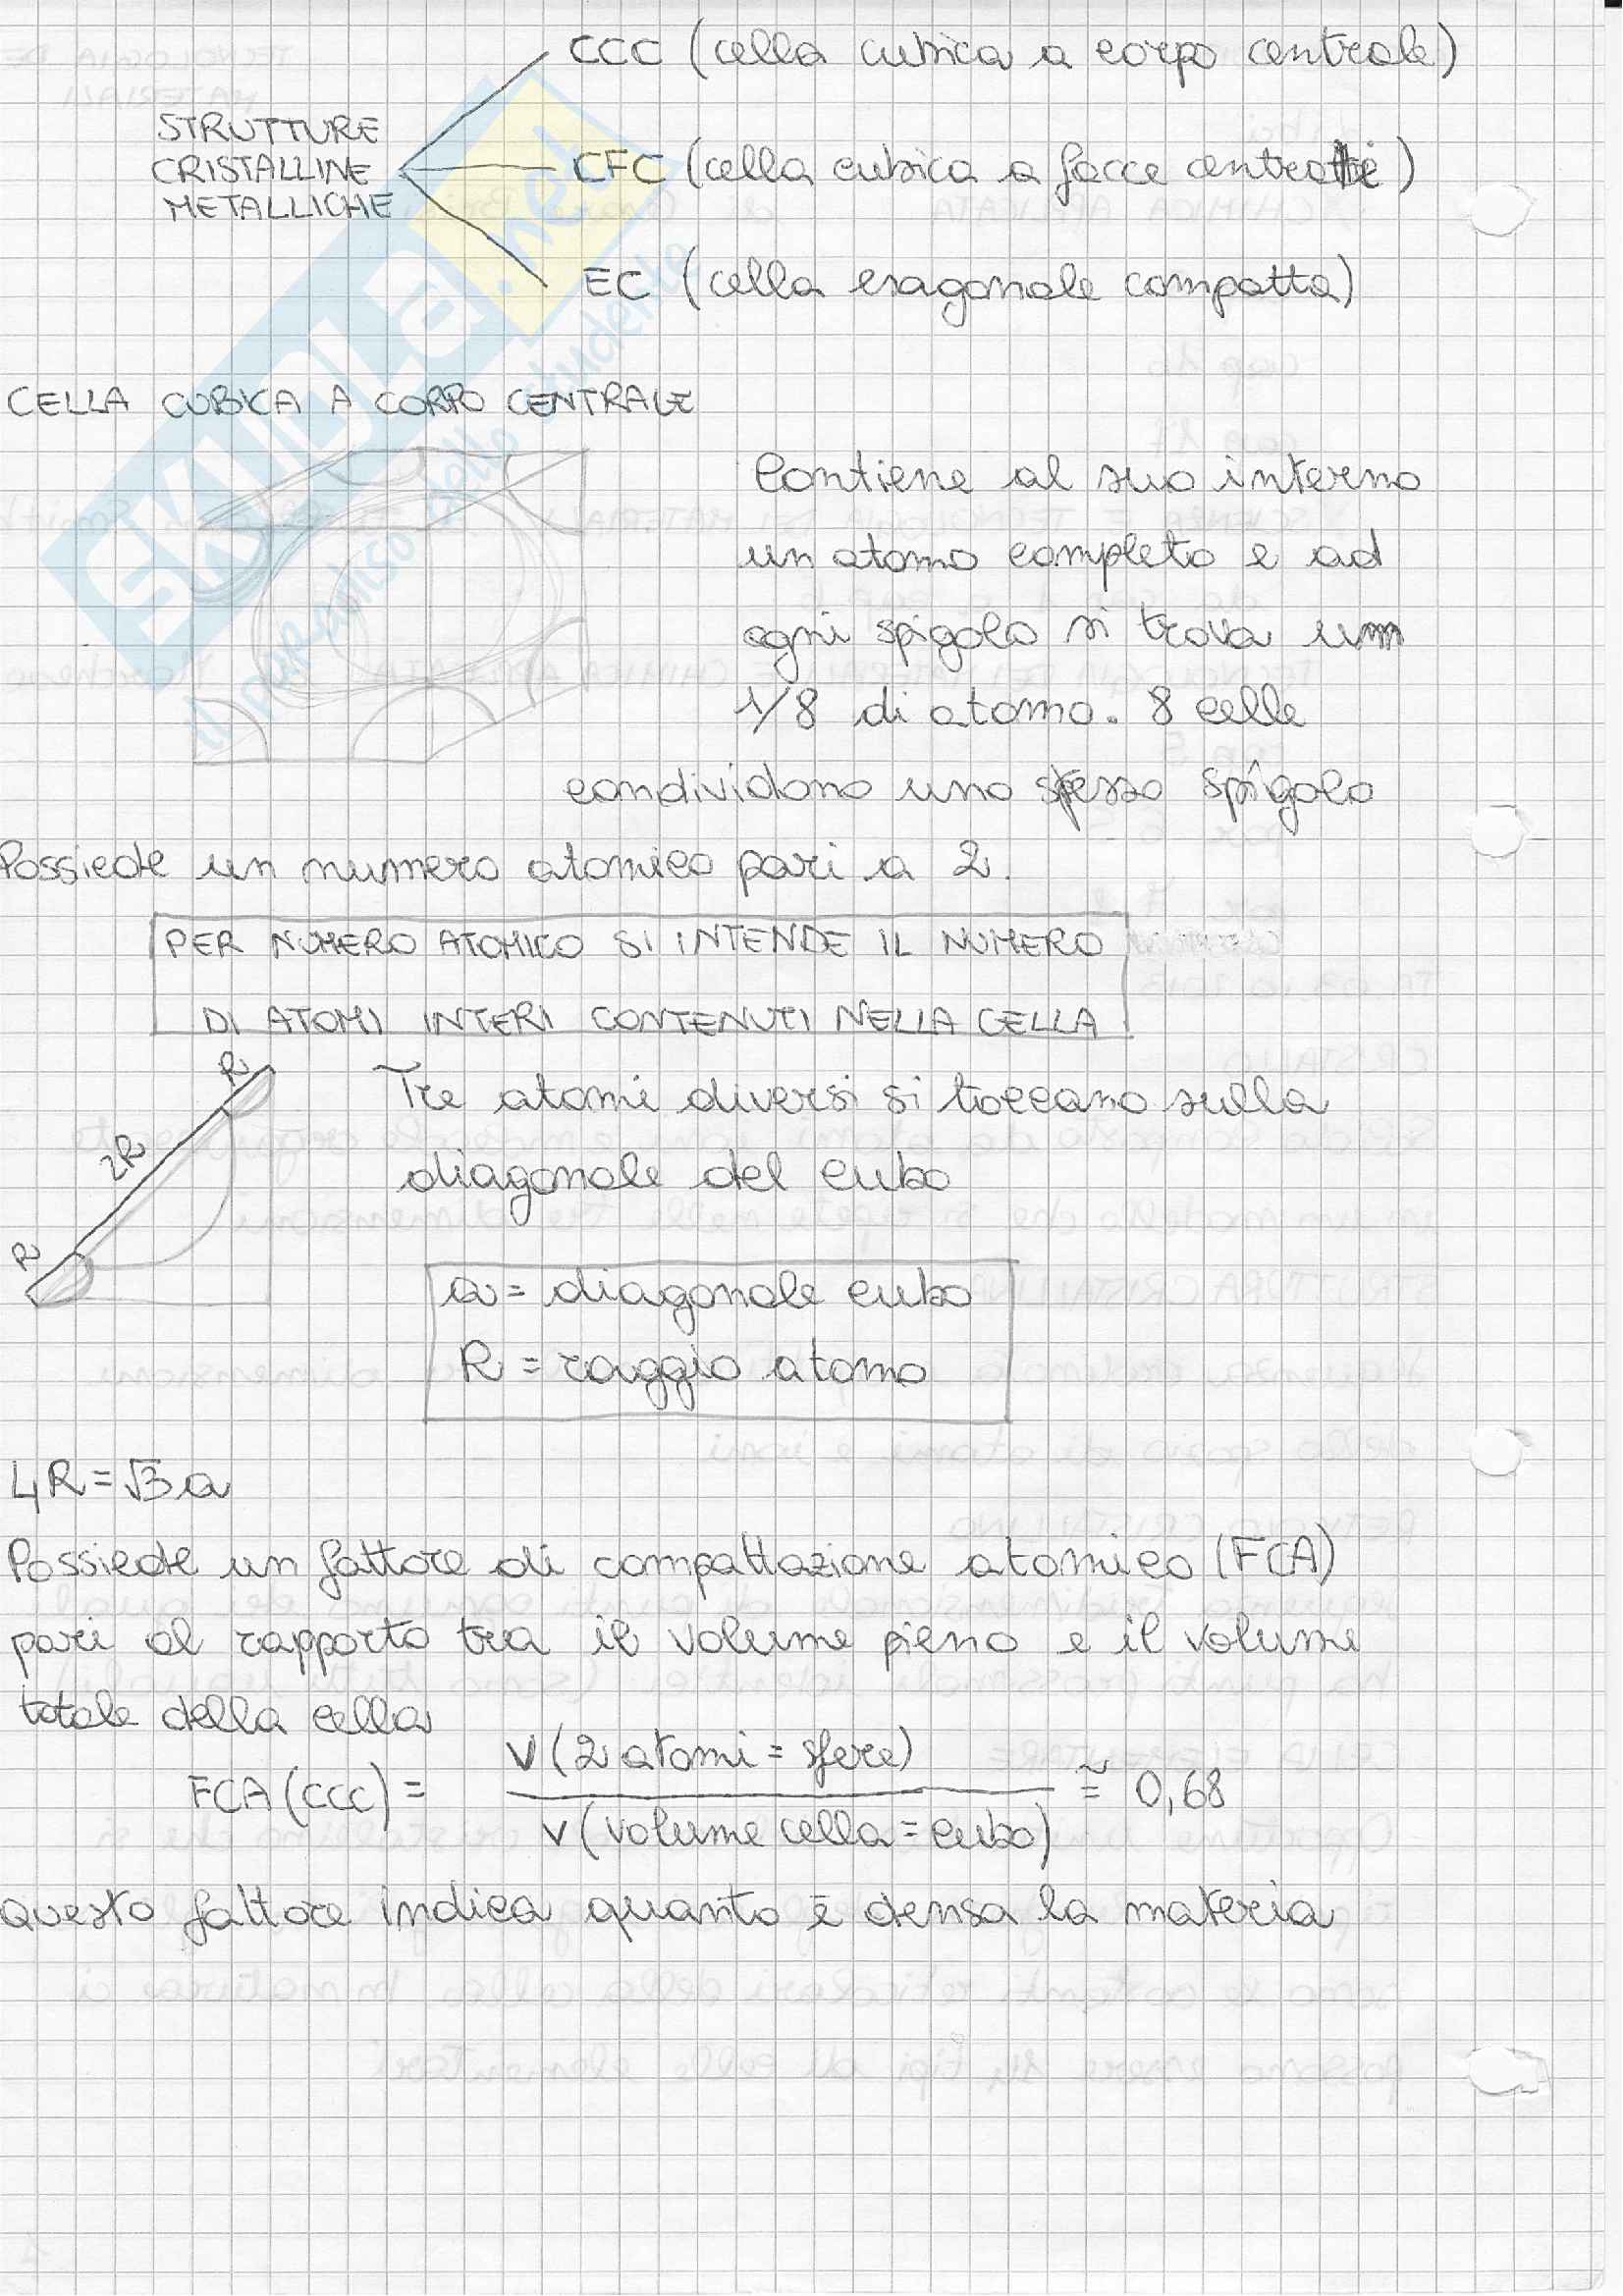 CCC (cella cubica a corpo centrale)
STRUTTURE
CRISTALLINE
METALLICHE
CFC (cella cubica a facce centrate)
EC (cella esagonale compatta)
SKUOLA.net
il paradiso dello studente
CELLA CUBICA A CORPO CENTRALE
Contiene al suo interno
un atomo completo e ad
ogni spigolo si trova un
1/8 di atomo. 8 celle
condividono uno stesso spigolo
Possiede un numero atomico pari a 2.
PER NUMERO ATOMICO SI INTENDE IL NUMERO
DI ATOMI INTERI CONTENUTI NELLA CELLA
R
2R
R
Tre atomi diversi si toccano sulla
diagonale del cubo
a = diagonale cubo
R = raggio atomo
4R = √3 a
Possiede un fattore di compattazione atomico (FCA)
pari al rapporto tra il volume pieno e il volume
totale della cella
FCA (CCC) = V (2 atomi = sfere) / V (volume cella = cubo) ≅ 0,68
Questo fattore indica quanto è densa la materia